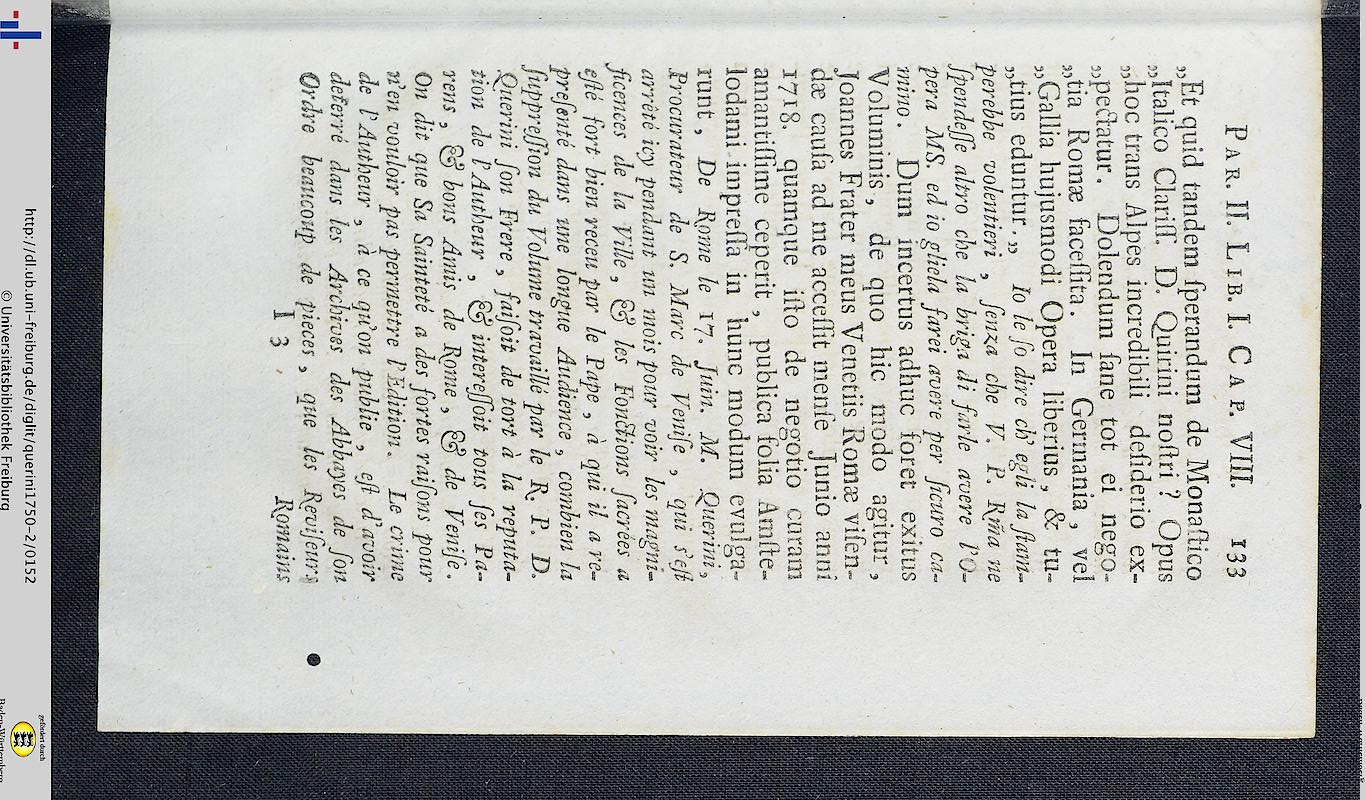 PAR. II. LIB. I. CAP. VIII. 133
„Et quid tandem ſperandum de Monaſtico
„Italico Clariſſ. D. Quirini noſtri? Opus
„hoc trans Alpes incredibili deſiderio ex-
„pectatur. Dolendum ſane tot ei nego-
„tia Romæ faceſſita. In Germania, vel
„Gallia hujusmodi Opera liberius, & tu-
„tius eduntur.„ Io le ſo dire ch' egli la ſtam-
perebbe volentieri, ſenza che V. P. Rm̃a ne
ſpendeſſe altro che la briga di farle avere l'O-
pera MS. ed io gliela farei avere per ſicuro ca-
mino. Dum incertus adhuc foret exitus
Voluminis, de quo hic modo agitur,
Joannes Frater meus Venetiis Romæ viſen-
dæ cauſa ad me acceſſit menſe Junio anni
1718. quamque iſto de negotio curam
amantiſſime ceperit, publica folia Amſte-
lodami impreſſa in hunc modum evulga-
runt, De Rome le 17. Juin. M. Querini,
Procurateur de S. Marc de Veniſe, qui s'eſt
arrèté icy pendant un mois pour voir les magni-
ficences de la Ville, & les Fonctions ſacrées a
eſté fort bien receu par le Pape, à qui il a re-
preſenté dans une longue Audience, combien la
ſuppreſſion du Volume travaillé par le R. P. D.
Querini ſon Frere, faiſoit de tort à la reputa-
tion de l'Autheur, & intereſſoit tous ſes Pa-
rens, & bons Amis de Rome, & de Veniſe.
On dit que Sa Sainteté a des fortes raiſons pour
n'en vouloir pas permettre l'Edition. Le crime
de l'Autheur, à ce qu'on publie, eſt d'avoir
deterré dans les Archives des Abbayes de ſon
Ordre beaucoup de pieces, que les Reviſeurs
I 3 Romains
http://dl.ub.uni-freiburg.de/diglit/querini1750-2/0152
© Universitätsbibliothek Freiburg
gefördert durch